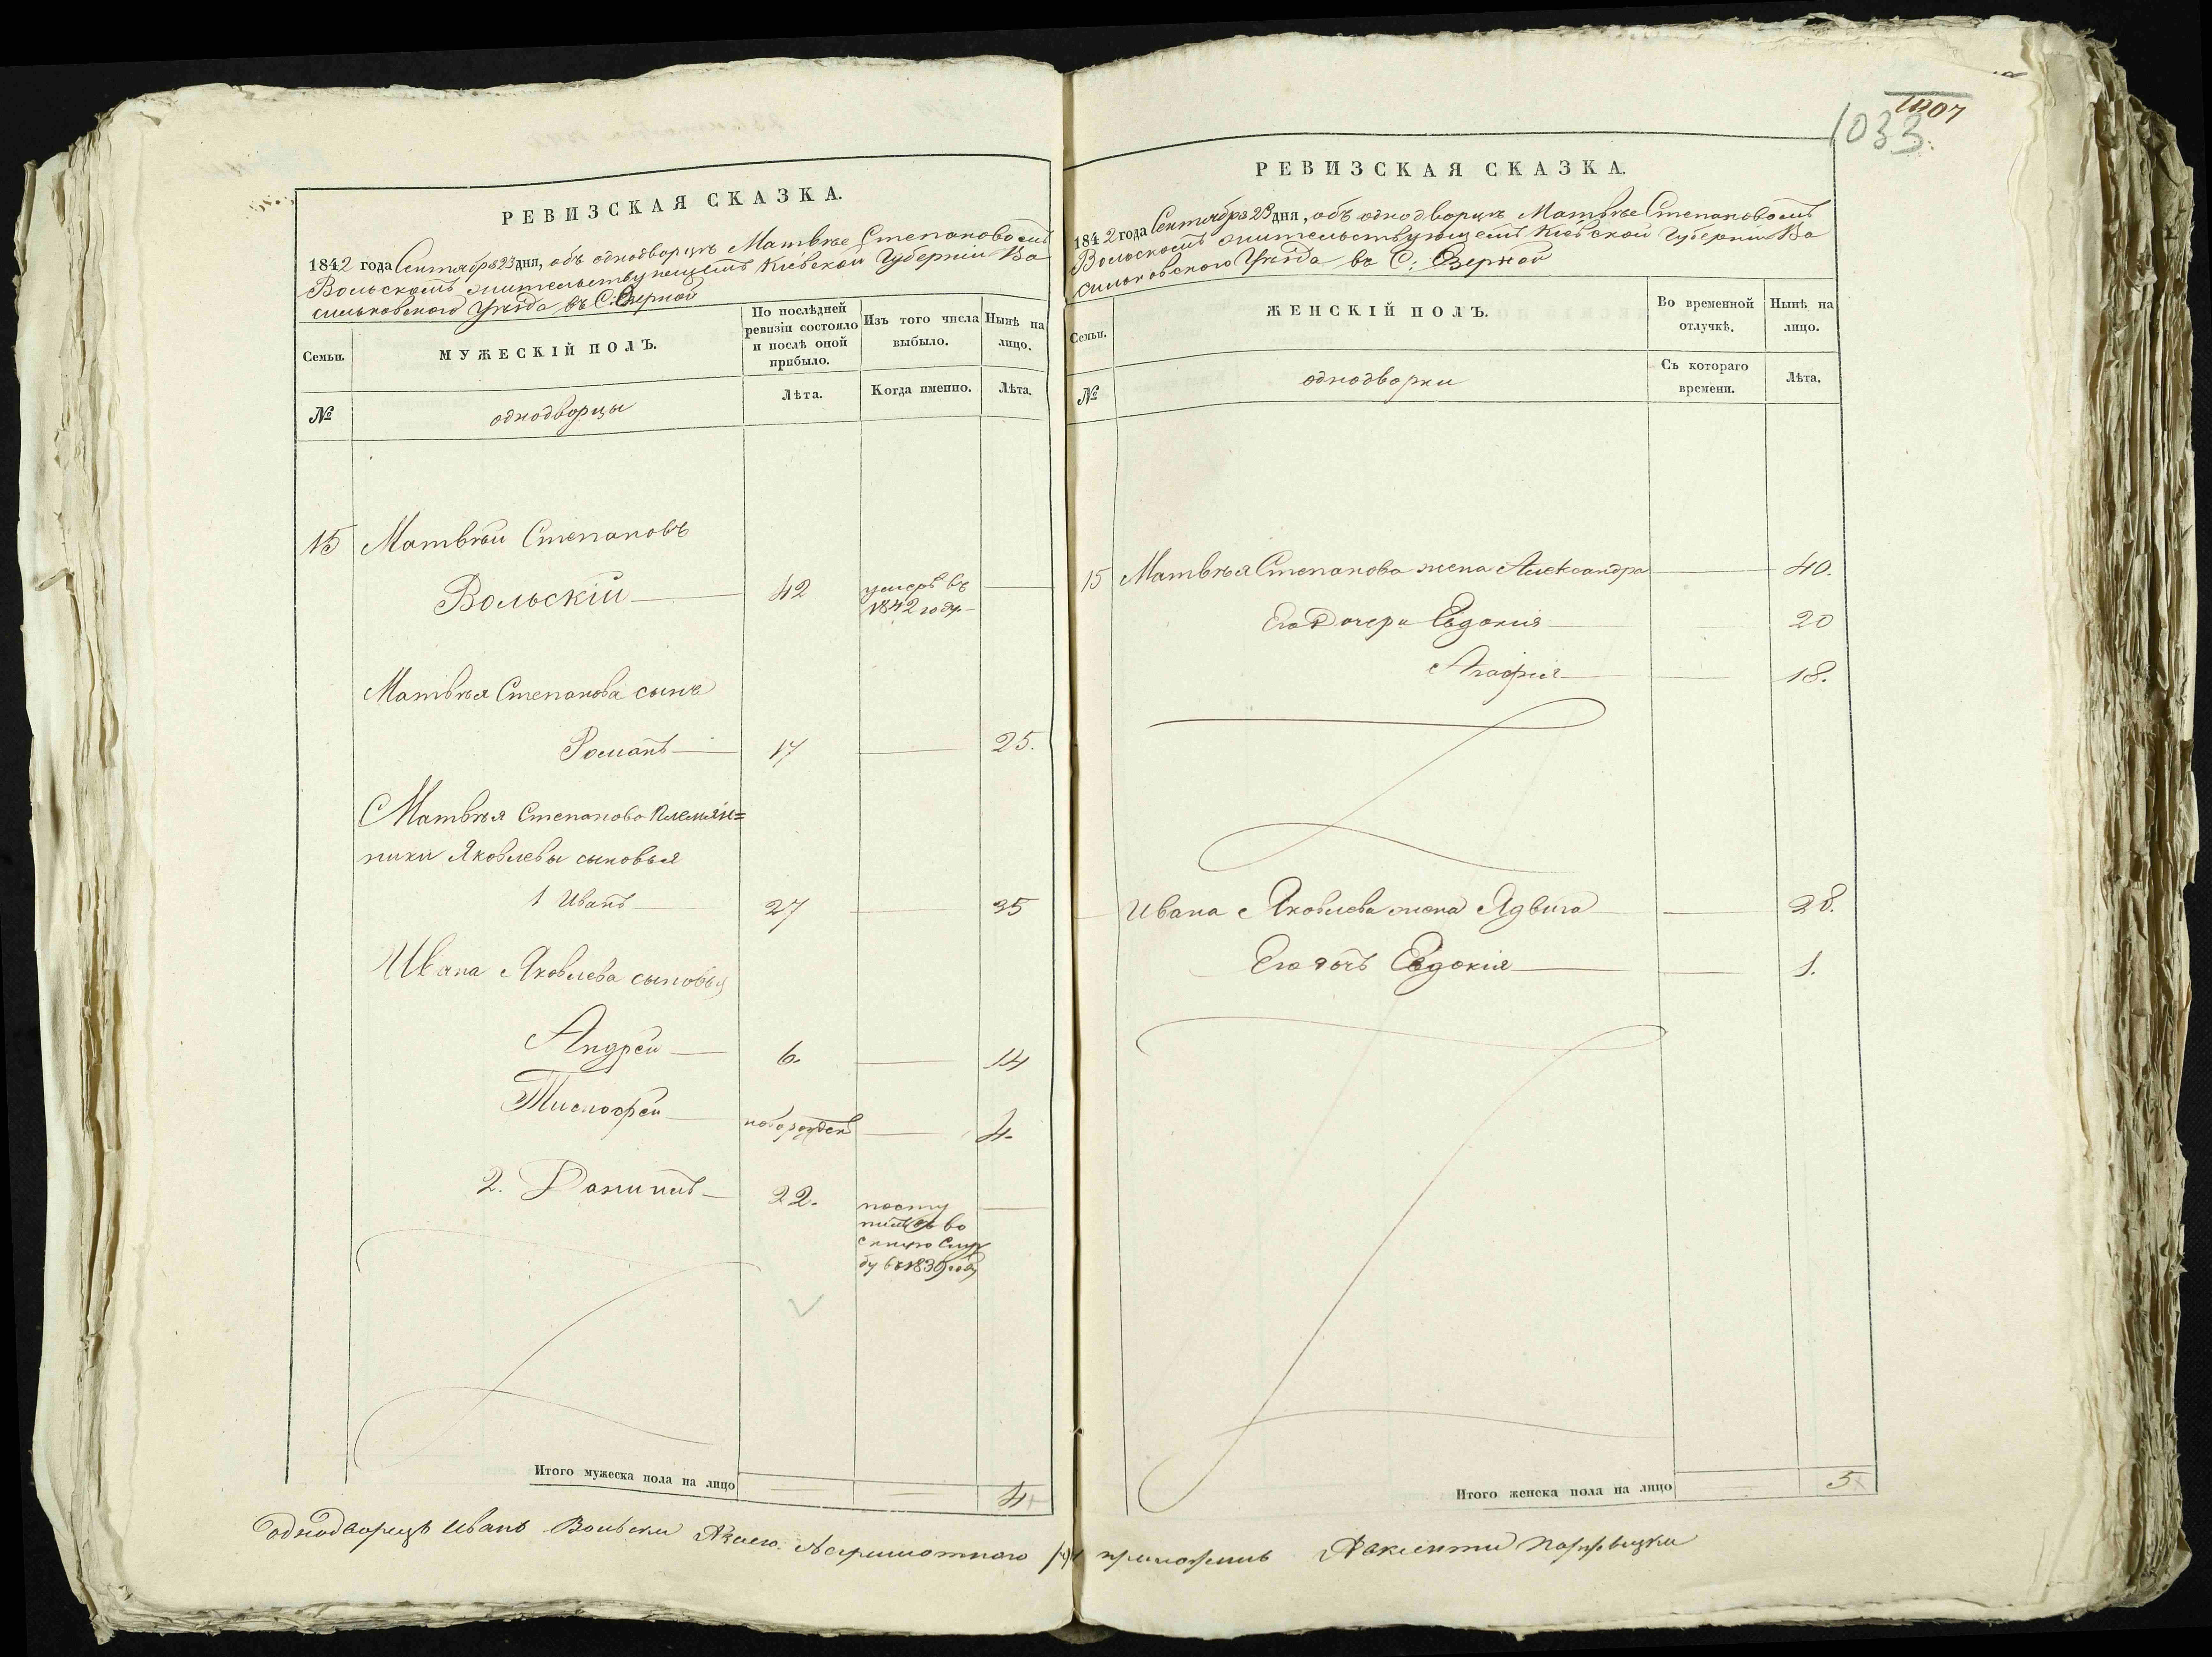 1007
1033
РЕВИЗСКАЯ СКАЗКА.
1842 года Сентября 23 дня, объ однодворцѣ Матвѣе Степановомъ
Вольскомъ жительствующемъ Кіевской Губерніи Ва
сильковского Уѣзда въ С. Озерной
Семьи.
МУЖЕСКІЙ ПОЛЪ.
По послѣдней ревизіи состояло и послѣ оной прибыло.
Изъ того числа выбыло.
Нынѣ на лицо.
№
однодворцы
Лѣта.
Когда именно.
Лѣта.
15 Матвѣй Степановъ
Вольскій 42 умеръ въ
1842 году
Матвѣя Степанова сынъ
Романъ 17 25.
Матвѣя Степанова племян=
ники Яковлевы сыновья
1 Иванъ 27 35
Ивана Яковлева сыновья
Андрей 6. 14
Тимофей новорожден 4.
2. Данилъ 22. посту
пилъ во
енную служ
бу въ 1839 году
Итого мужеска пола на лицо 4
РЕВИЗСКАЯ СКАЗКА.
1842 года Сентября 23 дня, объ однодворцѣ Матвѣе Степановомъ
Вольскомъ жительствующемъ Кіевской Губерніи Ва
сильковского Уѣзда въ С: Озерной
Семьи.
ЖЕНСКІЙ ПОЛЪ.
Во временной отлучкѣ.
Нынѣ на лицо.
№
однодворки
Съ котораго времени.
Лѣта.
15 Матвѣя Степанова жена Александра 40.
Его Дочери Евдокия 20
Агафия 18.
Ивана Яковлева жена Ядвига 28.
Его дочь Евдокия 1.
Итого женска пола на лицо 5
однодворецъ Иванъ Вольски неграмотного приложилъ